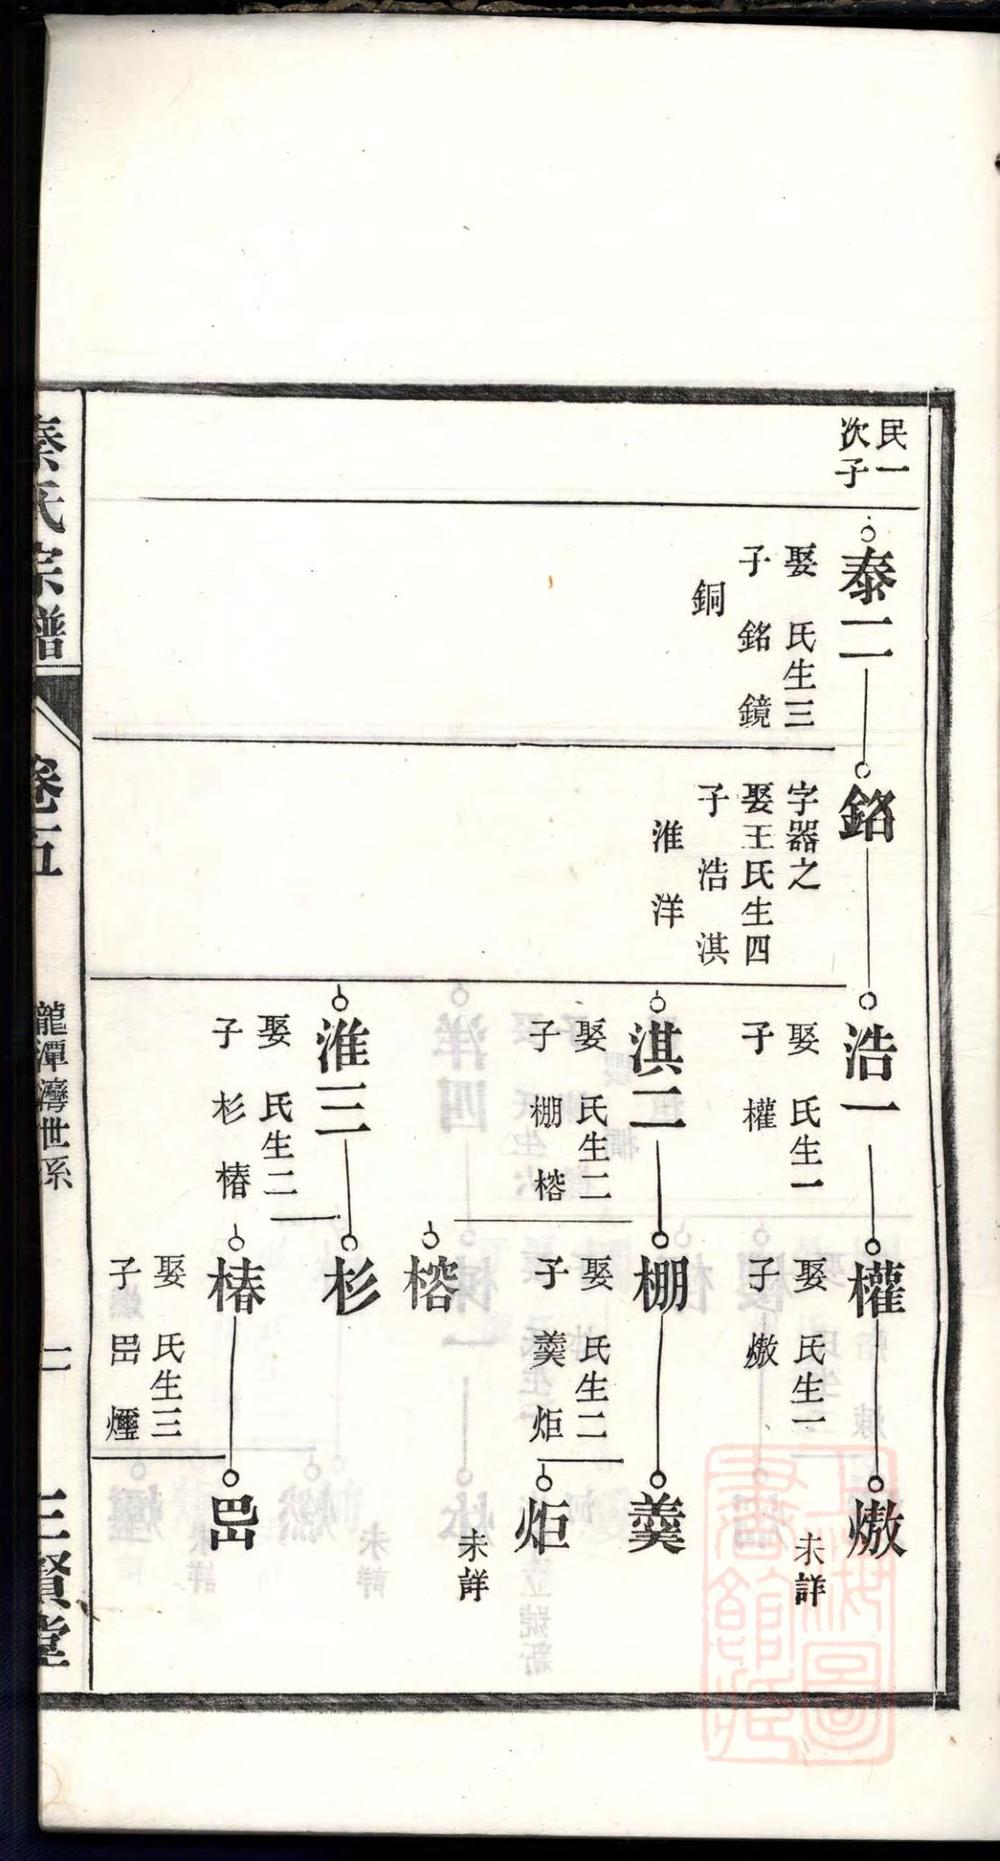 民一
次子
泰二
娶　氏生三
子　銘　鏡
銅
銘
字器之
娶王氏生四
子　浩　淇
淮　洋
浩一
娶　氏生一
子　權
淇二
娶　氏生二
子　棚　榕
淮三
娶　氏生二
子　杉　椿
權
娶　氏生一
子　燉
棚
娶　氏生二
子　羹　炬
榕
杉
椿
娶　氏生三
子　㠯　爾
未詳
羹
炬
未詳
秦氏宗譜
卷五
龍潭灣世系
三賢堂
上海圖書館藏